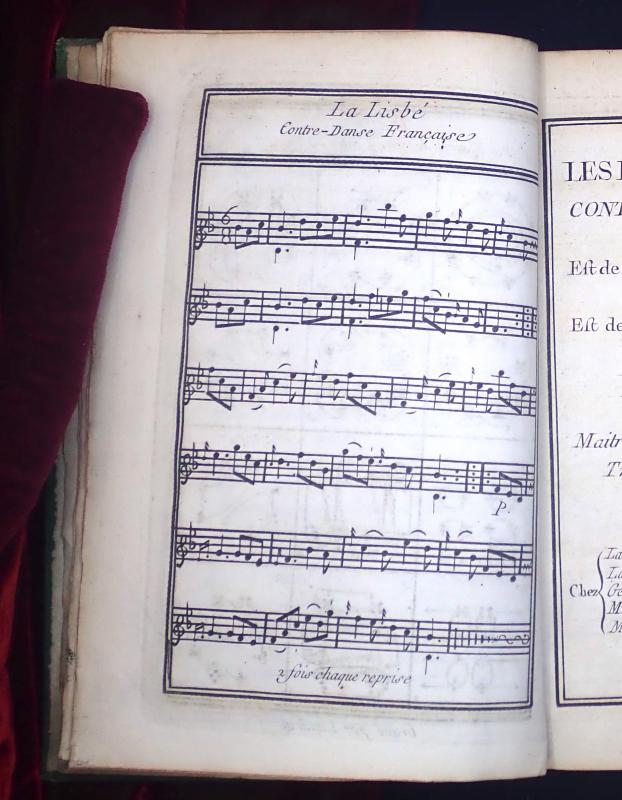 La Lisbé
Contre-Danse Française
6
8
P.
2 fois chaque reprise
LES
CONT
Est de
Est de
Maitr
Chez
La